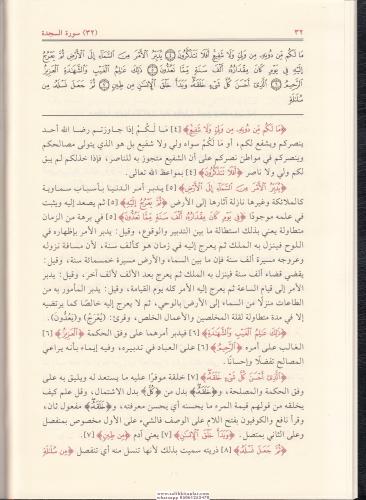 ٣٢ (٣٢) سورة السجدة
مَا لَكُم مِّن دُونِهِ مِن وَلِيٍّ وَلَا شَفِيعٍ أَفَلَا تَتَذَكَّرُونَ ۝٤ يُدَبِّرُ الْأَمْرَ مِنَ السَّمَاءِ إِلَى الْأَرْضِ ثُمَّ يَعْرُجُ
إِلَيْهِ فِي يَوْمٍ كَانَ مِقْدَارُهُ أَلْفَ سَنَةٍ مِّمَّا تَعُدُّونَ ۝٥ ذَٰلِكَ عَالِمُ الْغَيْبِ وَالشَّهَادَةِ الْعَزِيزُ
الرَّحِيمُ ۝٦ الَّذِي أَحْسَنَ كُلَّ شَيْءٍ خَلَقَهُ وَبَدَأَ خَلْقَ الْإِنسَانِ مِن طِينٍ ۝٧ ثُمَّ جَعَلَ نَسْلَهُ مِن
سُلَالَةٍ
﴿مَا لَكُم مِّن دُونِهِ مِن وَلِيٍّ وَلَا شَفِيعٍ﴾ [٤] مَا لَـكُـمْ إذا جاوزتـم رضا الله أحد
ينصركم ويشفع لكم، أو مَا لَكُمْ سواه ولي ولا شفيع بل هو الذي يتولى مصالحكم
وينصركم في مواطن نصركم على أن الشفيع متجوز به للناصر، فإذا خذلكم لم يبق
لكم ولي ولا ناصر ﴿أَفَلَا تَتَذَكَّرُونَ﴾ [٤] بمواعظ الله تعالى.
﴿يُدَبِّرُ الْأَمْرَ مِنَ السَّمَاءِ إِلَى الْأَرْضِ﴾ [٥] يدبر أمـر الـدنيـا بأسبـاب سمـاويـة
كالملائكة وغيرها نازلة آثارها إلى الأرض ﴿ثُمَّ يَعْرُجُ إِلَيْهِ﴾ [٥] ثم يصعد إليه ويثبت
في علمه موجودًا ﴿فِي يَوْمٍ كَانَ مِقْدَارُهُ أَلْفَ سَنَةٍ مِّمَّا تَعُدُّونَ﴾ [٥] في برهة من الزمان
متطاولة يعني بذلك استطالة ما بين التدبير والوقوع، وقيل: يدبر الأمر بإظهاره في
اللوح فينزل به الملك ثم يعرج إليه في زمان هو كألف سنة، لأن مسافة نزوله
وعروجه مسيرة ألف سنة فإن ما بين السماء والأرض مسيرة خمسمائة سنة، وقيل:
يقضي قضاء ألف سنة فينزل به الملك ثم يعرج بعد الألف لألف آخر، وقيل: يدبر
الأمر إلى قيام الساعة ثم يعرج إليه الأمر كله يوم القيامة، وقيل: يدبر المأمور به من
الطاعات منزلًا من السماء إلى الأرض بالوحي، ثم لا يعرج إليه خالصًا كما يرتضيه
إلا في مدة متطاولة لقلة المخلصين والأعمال الخلص، وقرئ: (يُعْرَجُ) و(يَعُدُّون).
﴿ذَٰلِكَ عَالِمُ الْغَيْبِ وَالشَّهَادَةِ﴾ [٦] فيدبر أمرهما على وفق الحكمة ﴿الْعَزِيزُ﴾ [٦]
الغالب على أمره ﴿الرَّحِيمُ﴾ [٦] على العباد في تدبيره، وفيه إيماء بأنه يراعي
المصالح تفضلًا وإحسانًا.
﴿الَّذِي أَحْسَنَ كُلَّ شَيْءٍ خَلَقَهُ﴾ [٧] خلقه موفرًا عليه ما يستعد له ويليق به على
وفق الحكمة والمصلحة، و﴿خَلَقَهُ﴾ بدل من ﴿كُلَّ﴾ بدل الاشتمال، وقيل علم كيف
يخلقه من قولهم قيمة المرء ما يحسنه أي يحسن معرفته، و﴿خَلَقَهُ﴾ مفعول ثان،
وقرأ نافع والكوفيون بفتح اللام على الوصف فالشيء على الأول مخصوص بمنفصل
وعلى الثاني بمتصل. ﴿وَبَدَأَ خَلْقَ الْإِنسَانِ﴾ [٧] يعني آدم ﴿مِن طِينٍ﴾ [٧].
﴿ثُمَّ جَعَلَ نَسْلَهُ﴾ [٨] ذريته سميت بذلك لأنها تنسل منه أي تنفصل ﴿مِن سُلَالَةٍ